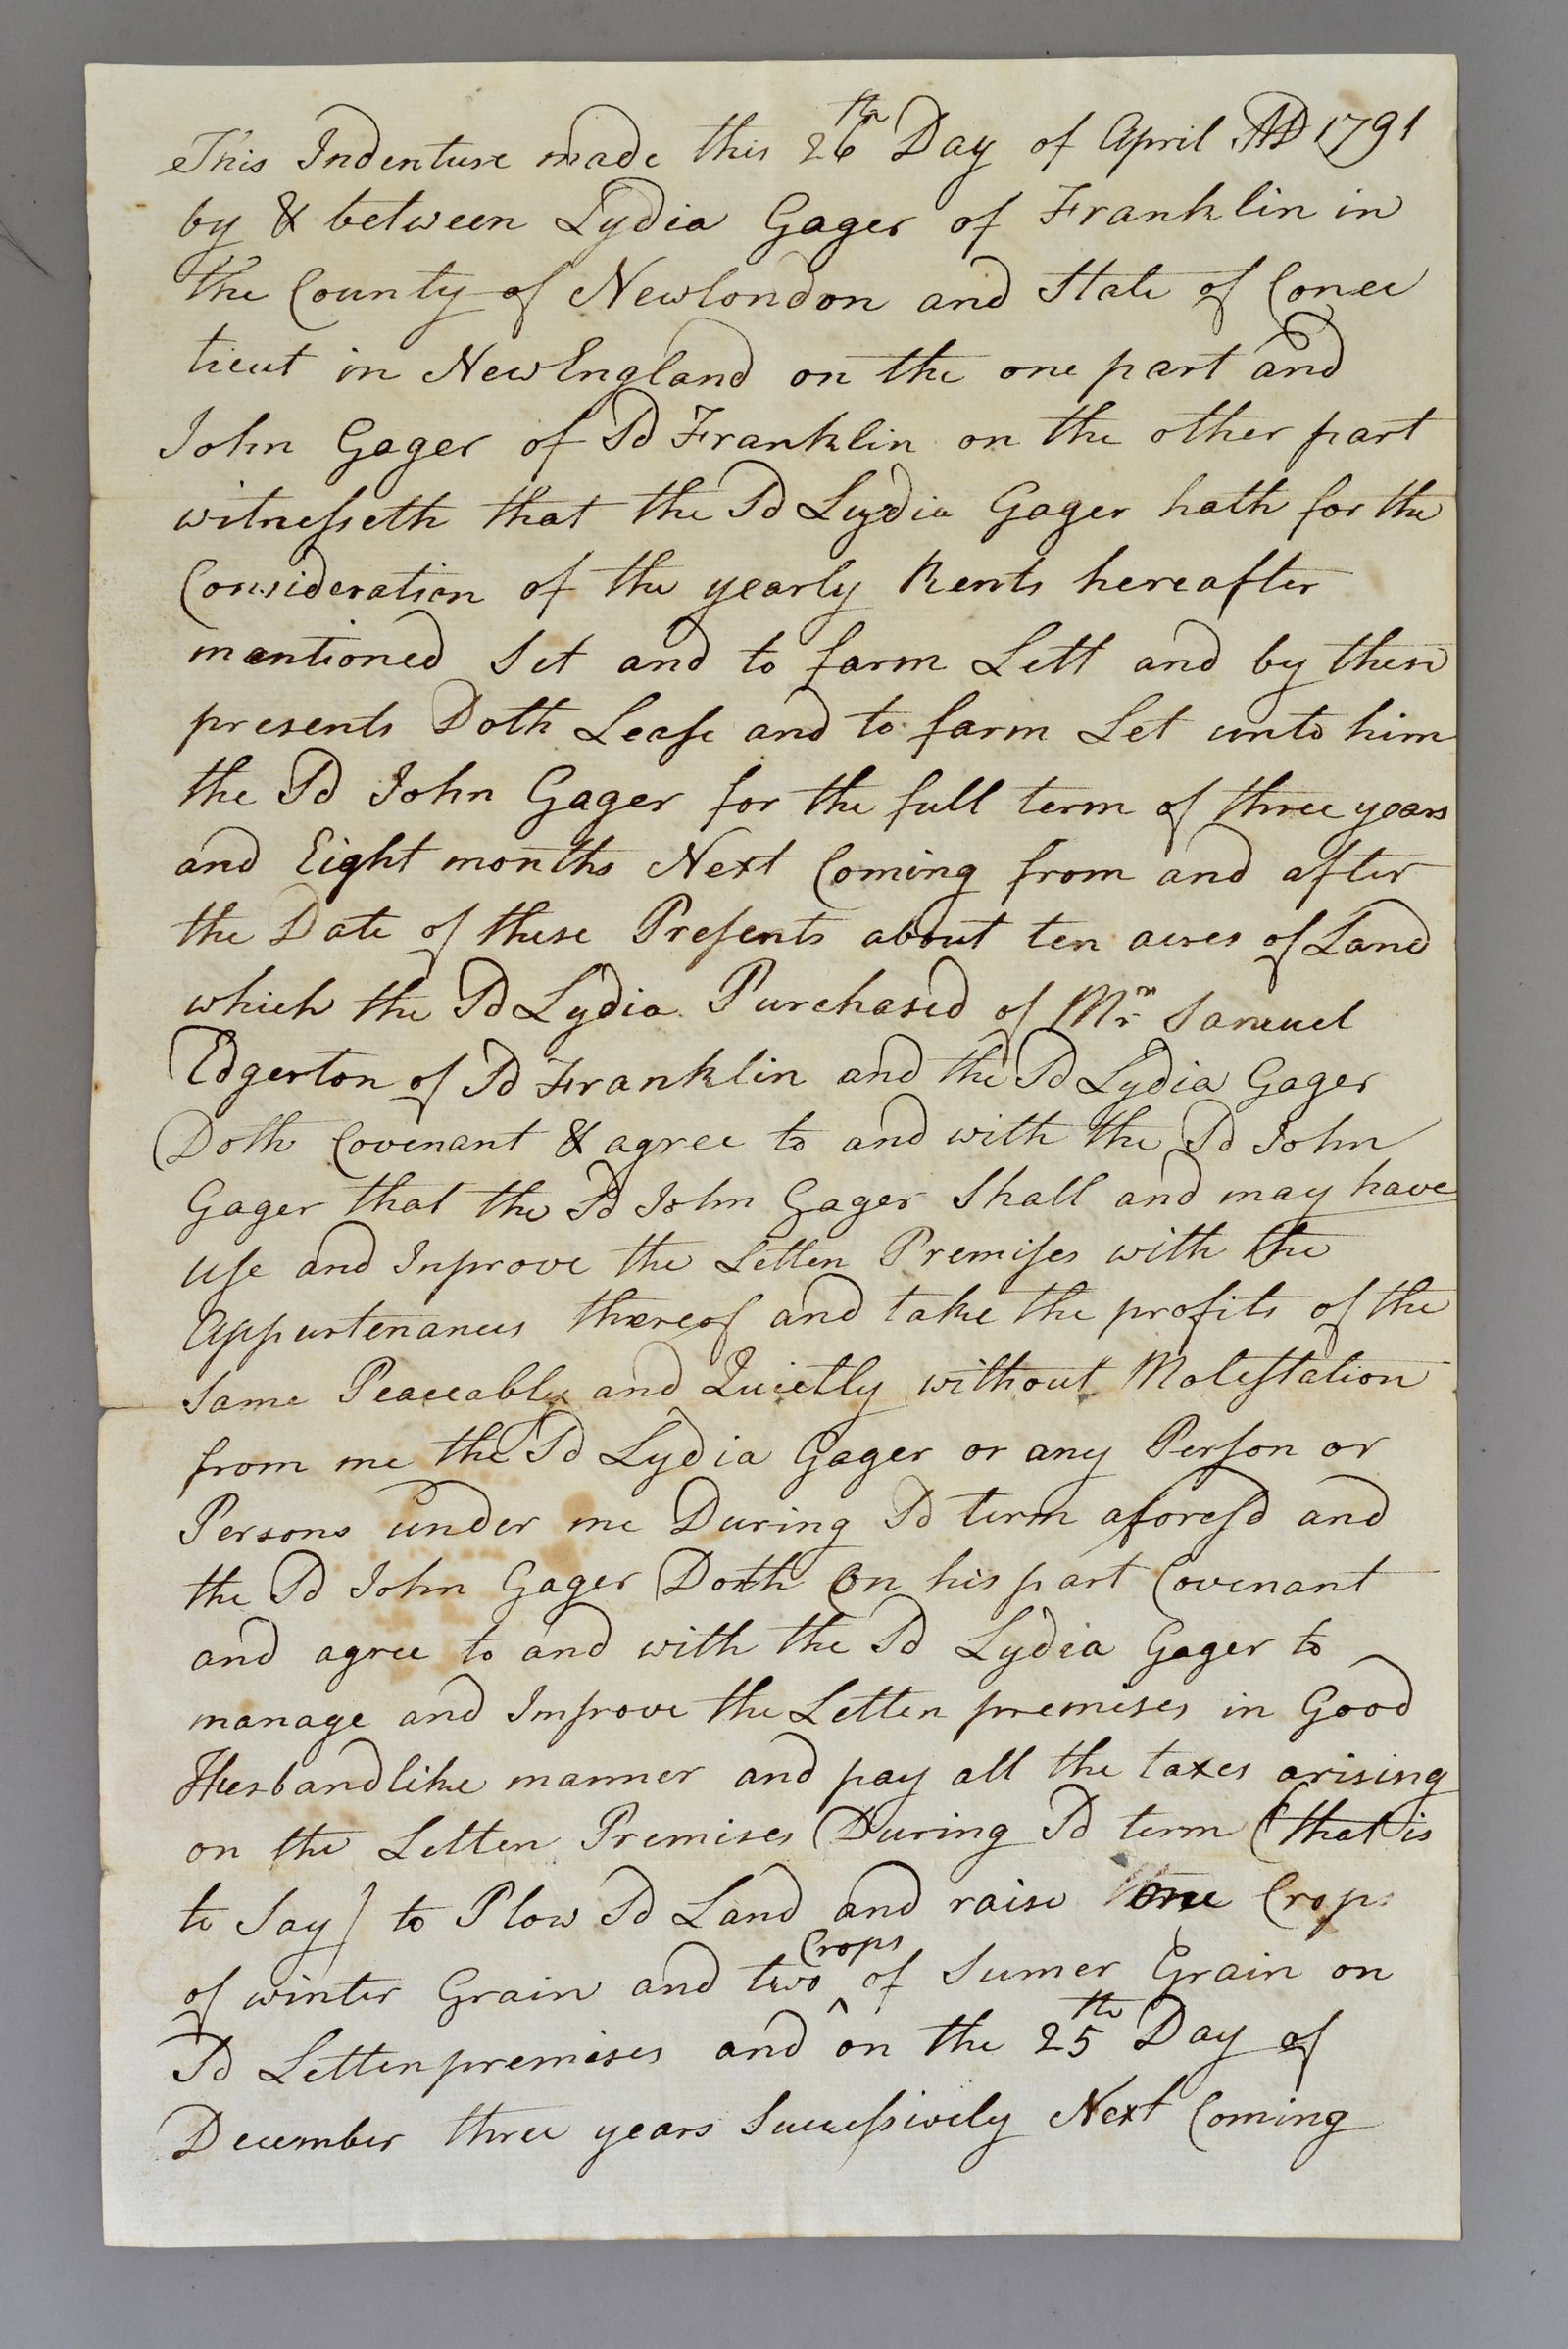 This Indenture made this 26th Day of April AD 1791
by & between Lydia Gager of Franklin in
the County of Newlondon and State of Conec
ticut in NewEngland on the one part and
John Gager of Sd Franklin on the other part
witnesseth that the Sd Lydia Gager hath for the
Consideration of the yearly Rents hereafter
mentioned Set and to farm Lett and by these
presents Doth Lease and to farm Let unto him
the Sd John Gager for the full term of three years
and Eight months Next Coming from and after
the Date of these Presents about ten acres of Land
which the Sd Lydia Purchased of Mr Samuel
Edgerton of Sd Franklin and the Sd Lydia Gager
Doth Covenant & agree to and with the Sd John
Gager that the Sd John Gager Shall and may have
use and Inprove the Letten Premises with the
Appurtenances thereof and take the profits of the
Same Peaceably and Quietly without Molestation
from me the Sd Lydia Gager or any Person or
Persons under me During Sd term aforesd and
the Sd John Gager Doth on his part Covenant
and agree to and with the Sd Lydia Gager to
manage and Improve the Letten premises in Good
Husbandlike manner and pay all the taxes arising
on the Letten Premises During Sd term (that is
to Say) to Plow Sd Land and raise one Crop
of winter Grain and two Crops of Sumer Grain on
Sd Letten premises and on the 25th Day of
December three years Successively Next Coming